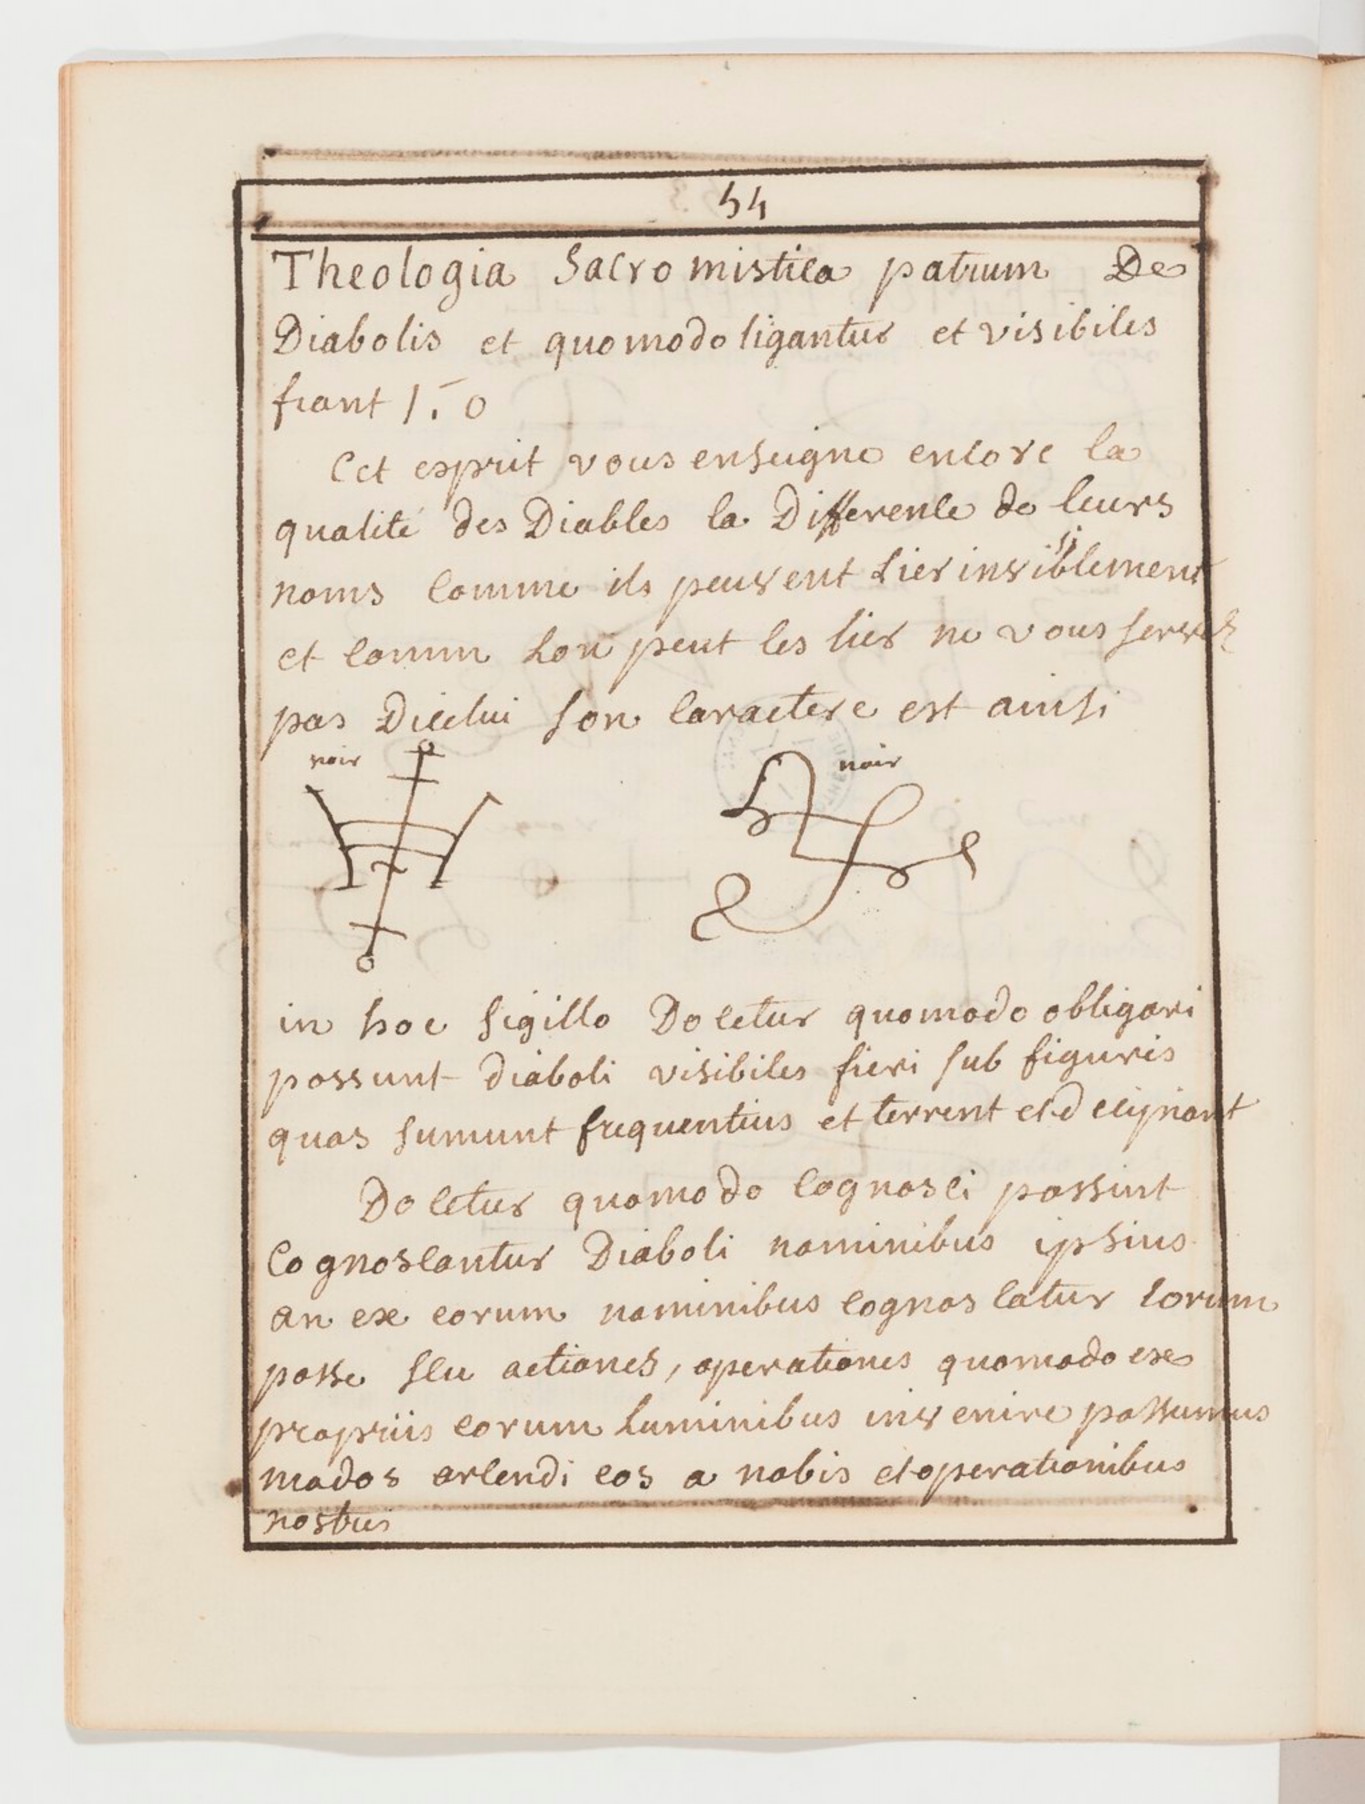 54
Theologia Sacro mistica patrum De
Diabolis et quomodo ligantur et visibiles
fiant 1. o
Cet esprit vous enseigne encore la
qualité des Diables la Difference de leurs
noms comme ils peuvent Lier invisiblement
et comm Lon peut les lier ne vous servez
pas Dicelui son caractere est ainsi
noir noir
in hoc sigillo Docetur quomodo obligari
possunt diaboli visibiles fieri sub figuris
quas sumunt frequentius et terrent et decipiant
Docetur quomodo cognosci possint
Cognoscantur Diaboli nominibus ipsius
an ex eorum nominibus cognoscatur eorum
posse seu actiones, operationes quomodo ex
propriis eorum Luminibus invenire possumus
modos arcendi eos a nobis et operationibus
nostris